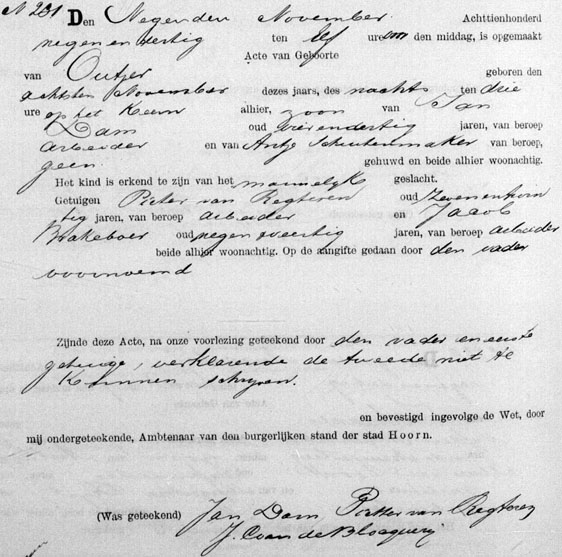 N 231 Den Negenden November Achttienhonderd
negen en dertig ten elf ure des middag, is opgemaakt
Acte van Geboorte
van Outjer geboren den
achtsten November dezes jaars, des nachts ten drie
ure op het Keern alhier, zoon van Jan
Dam oud vierendertig jaren, van beroep
arbeider en van Antje Schuitenmaker van beroep,
geen gehuwd en beide alhier woonachtig.
Het kind is erkend te zijn van het mannelijk geslacht.
Getuigen Pieter van Regteren oud
tig jaren, van beroep arbeider en Jacob
Brakeboer oud negen veertig jaren, van beroep arbeider
beide alhier woonachtig. Op de aangifte gedaan door den vader
voornoemd
Zijnde deze Acte, na onze voorlezing geteekend door den vader en eerste
getuige, verklarende de tweede niet te
Kunnen schrijven.
en bevestigd ingevolge de Wet, door
mij ondergeteekende, Ambtenaar van den burgerlijken stand der stad Hoorn.
(Was geteekend) Jan Dam Pieter van Regteren
J. C van de Blocquery